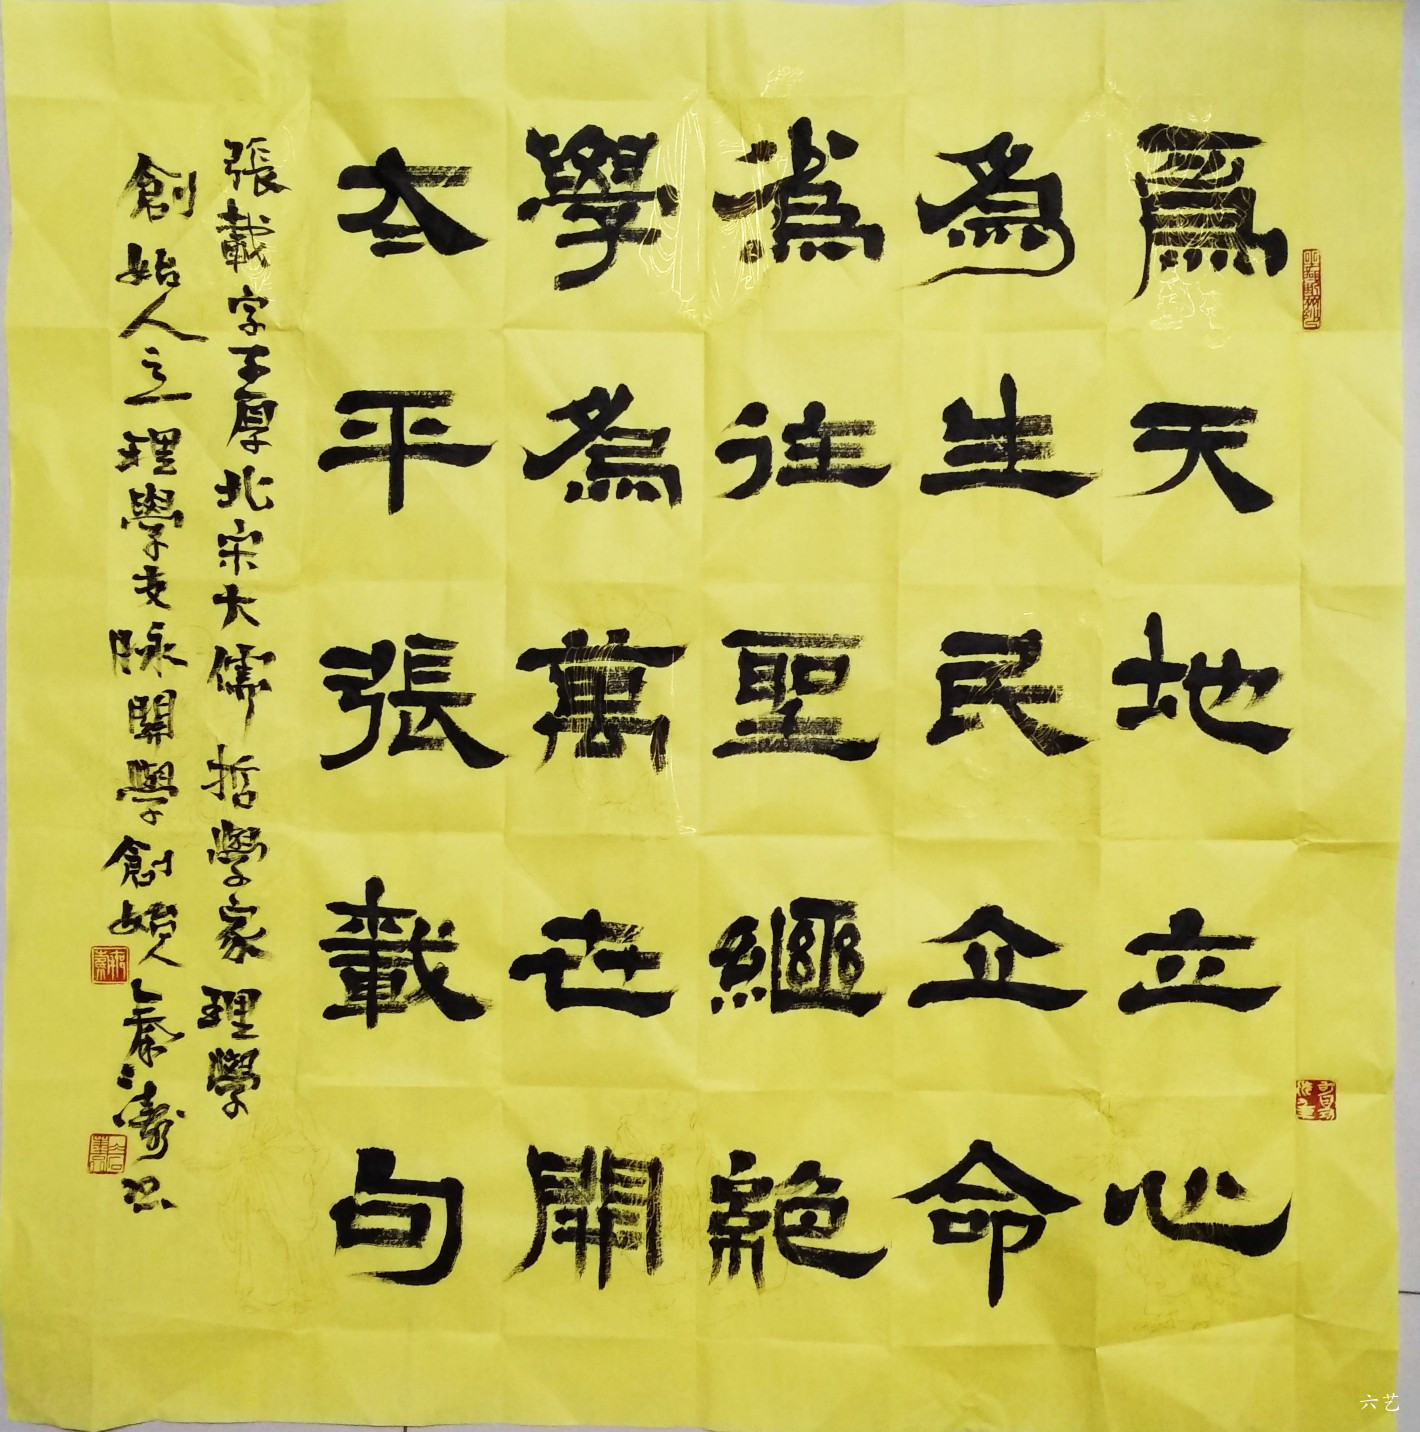 爲天地立心
為生民立命
為往聖繼絕
學為萬世開
太平張載句
張載字子厚北宋大儒哲學家理學
創始人之一理學支脉開學創始人秦濤书
六艺